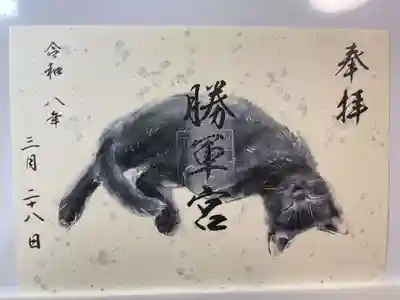 奉拝
勝軍宮
令和八年
三月二十八日